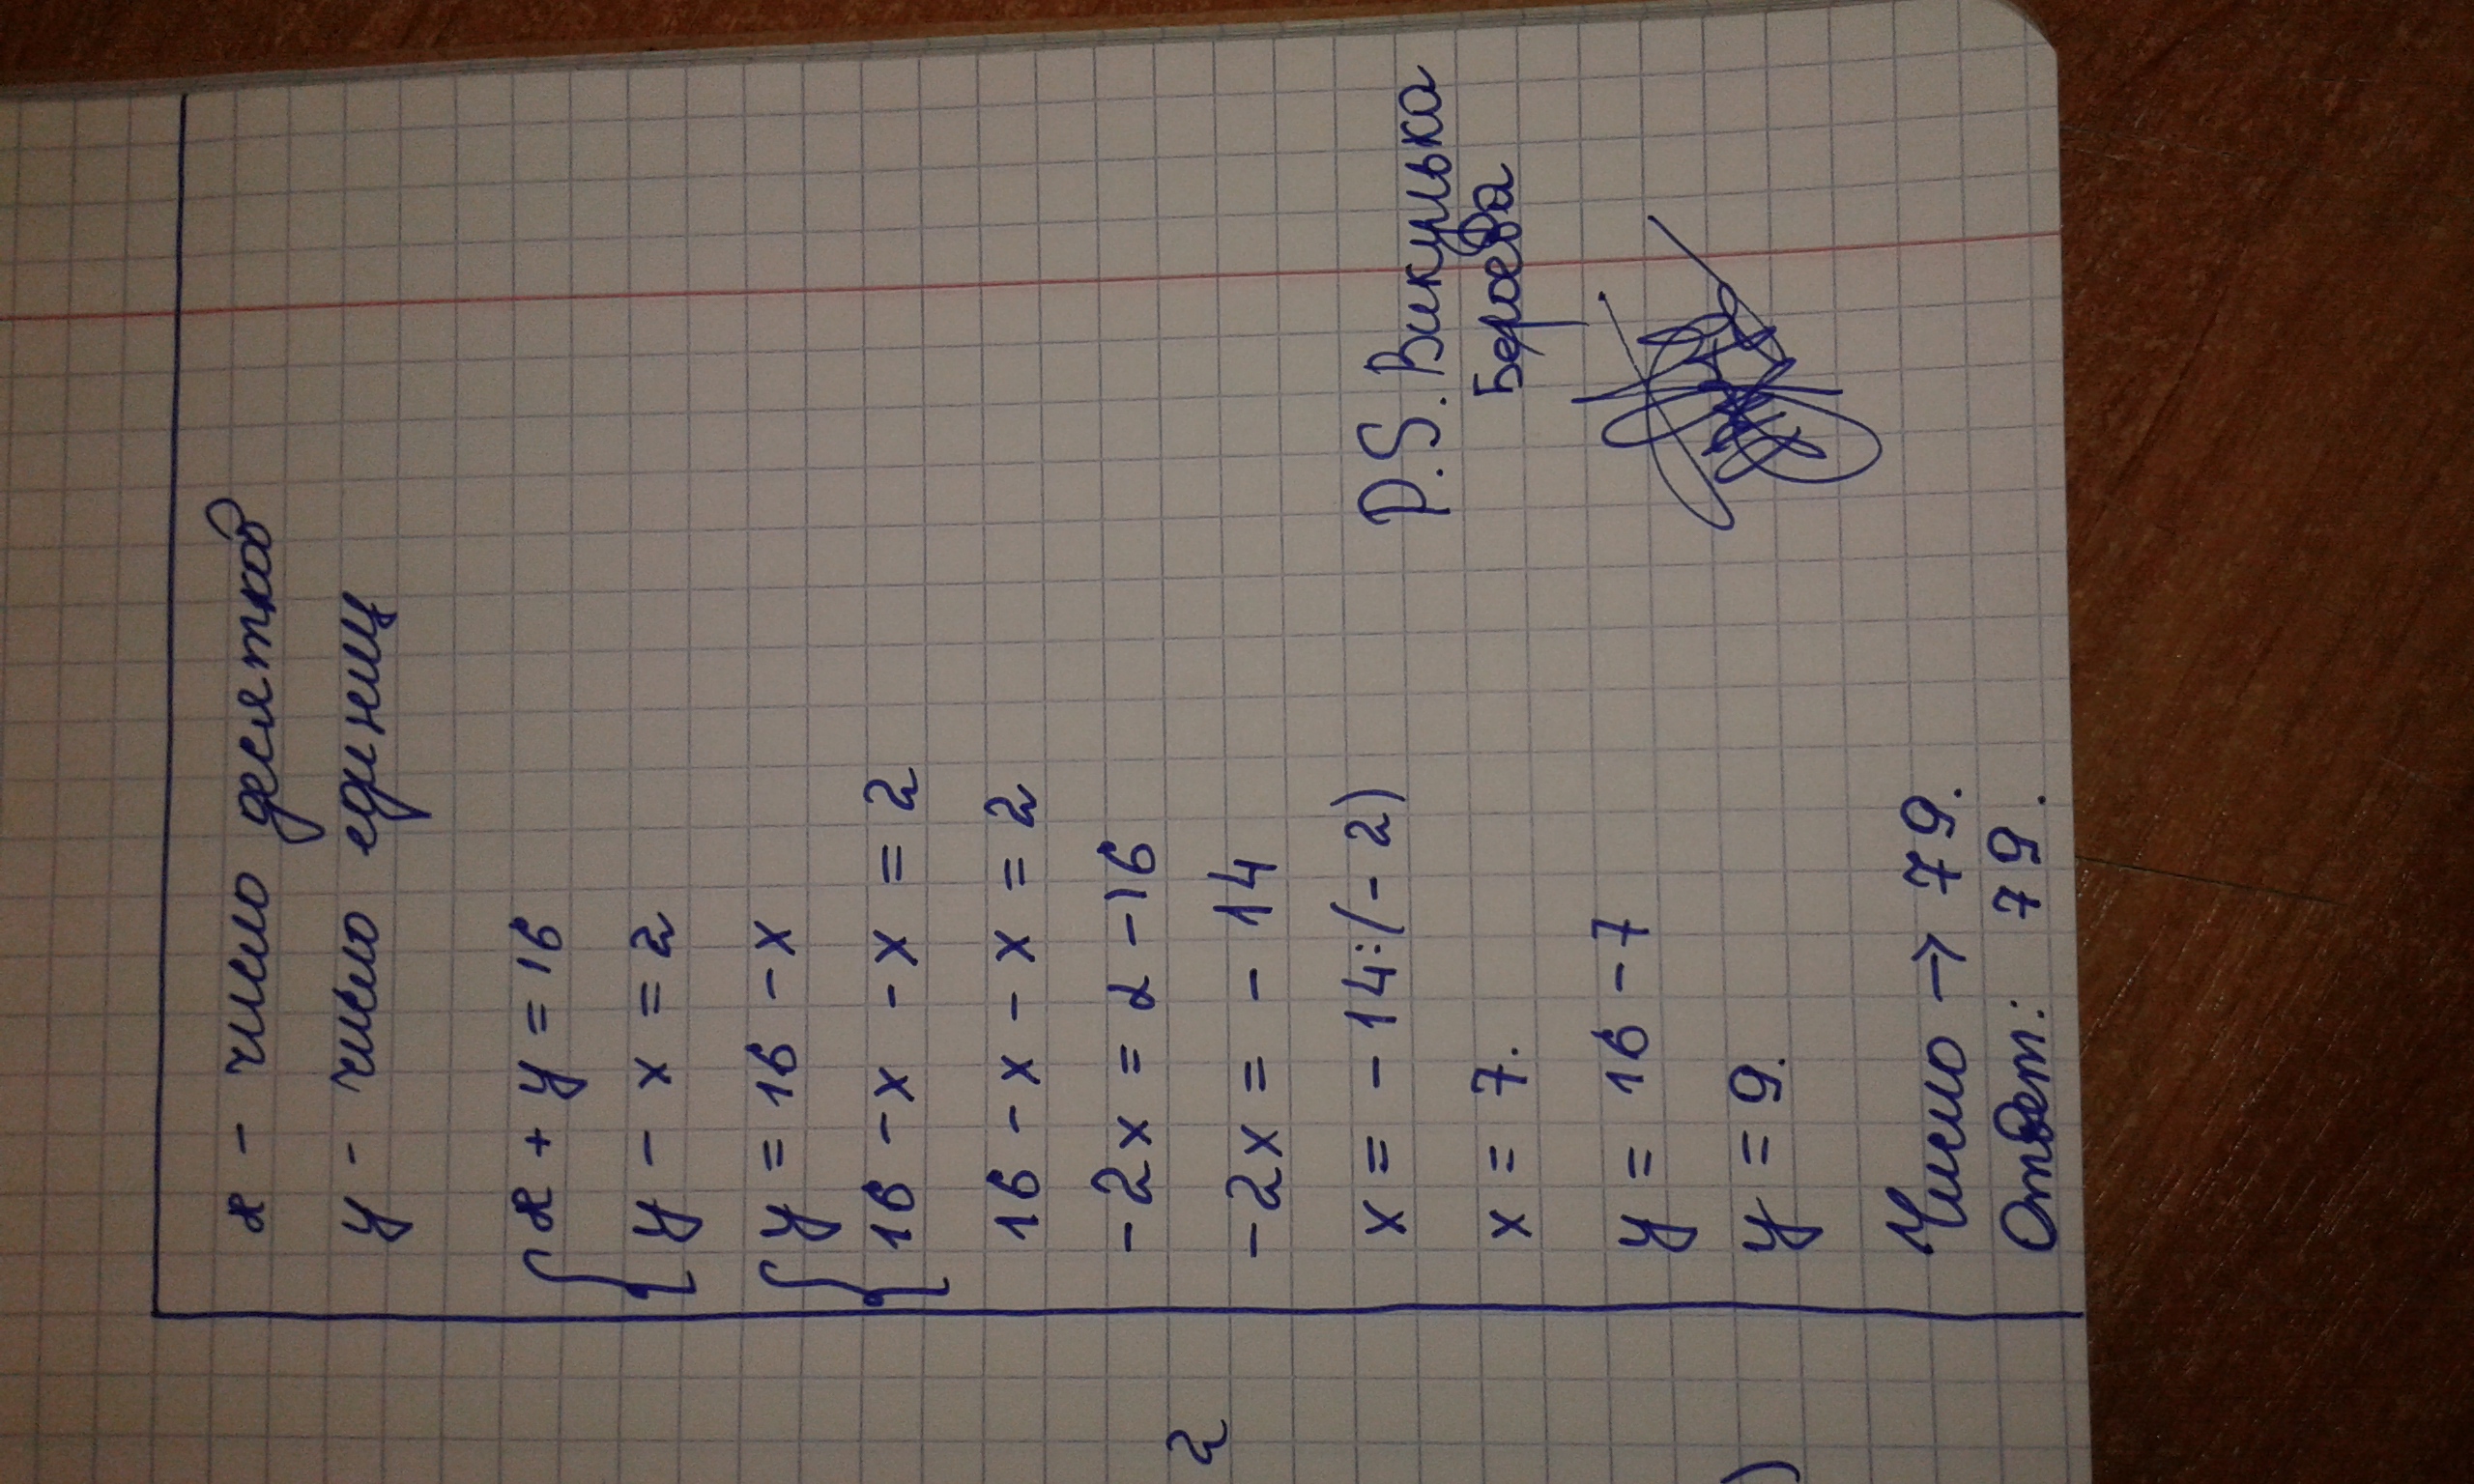 x - число десятков
y - число единиц
{ x + y = 16
{ y - x = 2
{ y = 16 - x
{ 16 - x - x = 2
16 - x - x = 2
-2x = 2 - 16
-2x = - 14
x = - 14:(- 2)
x = 7.
y = 16 - 7
y = 9.
Число → 79.
Ответ: 79.
P.S. Викулька
Бероева
2
)